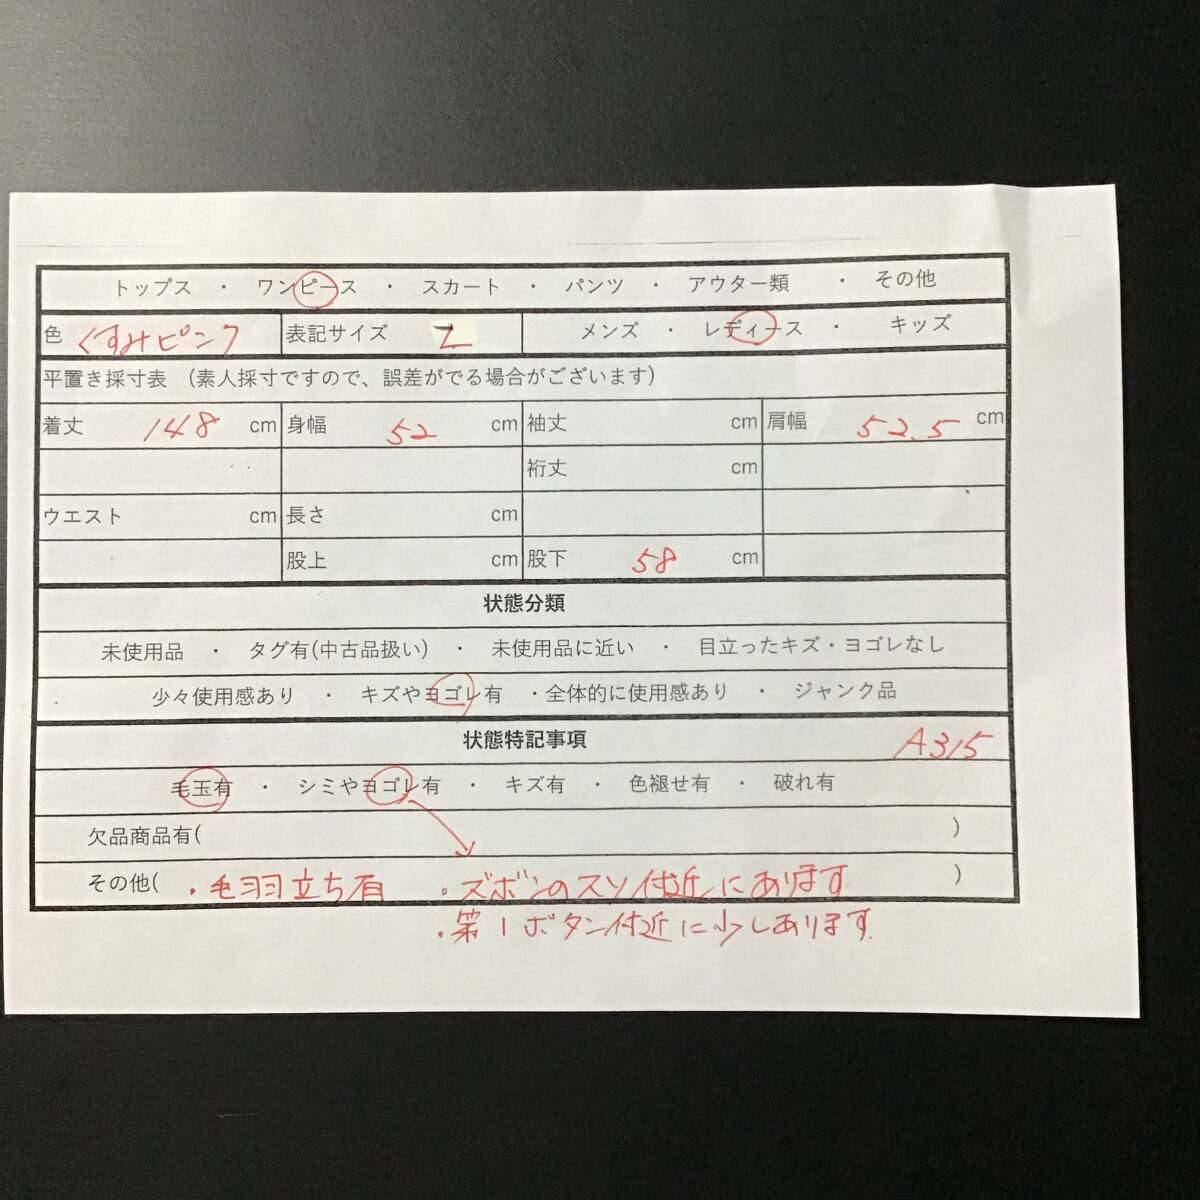 トップス ・ ワンピース ・ スカート ・ パンツ ・ アウター類 ・ その他
色 くすみピンク 表記サイズ L メンズ ・ レディース ・ キッズ
平置き採寸表 (素人採寸ですので、誤差がでる場合がございます)
着丈 148 cm 身幅 52 cm 袖丈 cm 肩幅 52.5 cm
裄丈 cm
ウエスト cm 長さ cm
股上 cm 股下 58 cm
状態分類
未使用品 ・ タグ有(中古品扱い) ・ 未使用品に近い ・ 目立ったキズ・ヨゴレなし
少々使用感あり ・ キズやヨゴレ有 ・全体的に使用感あり ・ ジャンク品
状態特記事項 A315
毛玉有 ・ シミやヨゴレ有 ・ キズ有 ・ 色褪せ有 ・ 破れ有
欠品商品有( )
その他( ・毛羽立ち有 ・ズボンのスソ付近にあります )
・第1ボタン付近に少しあります